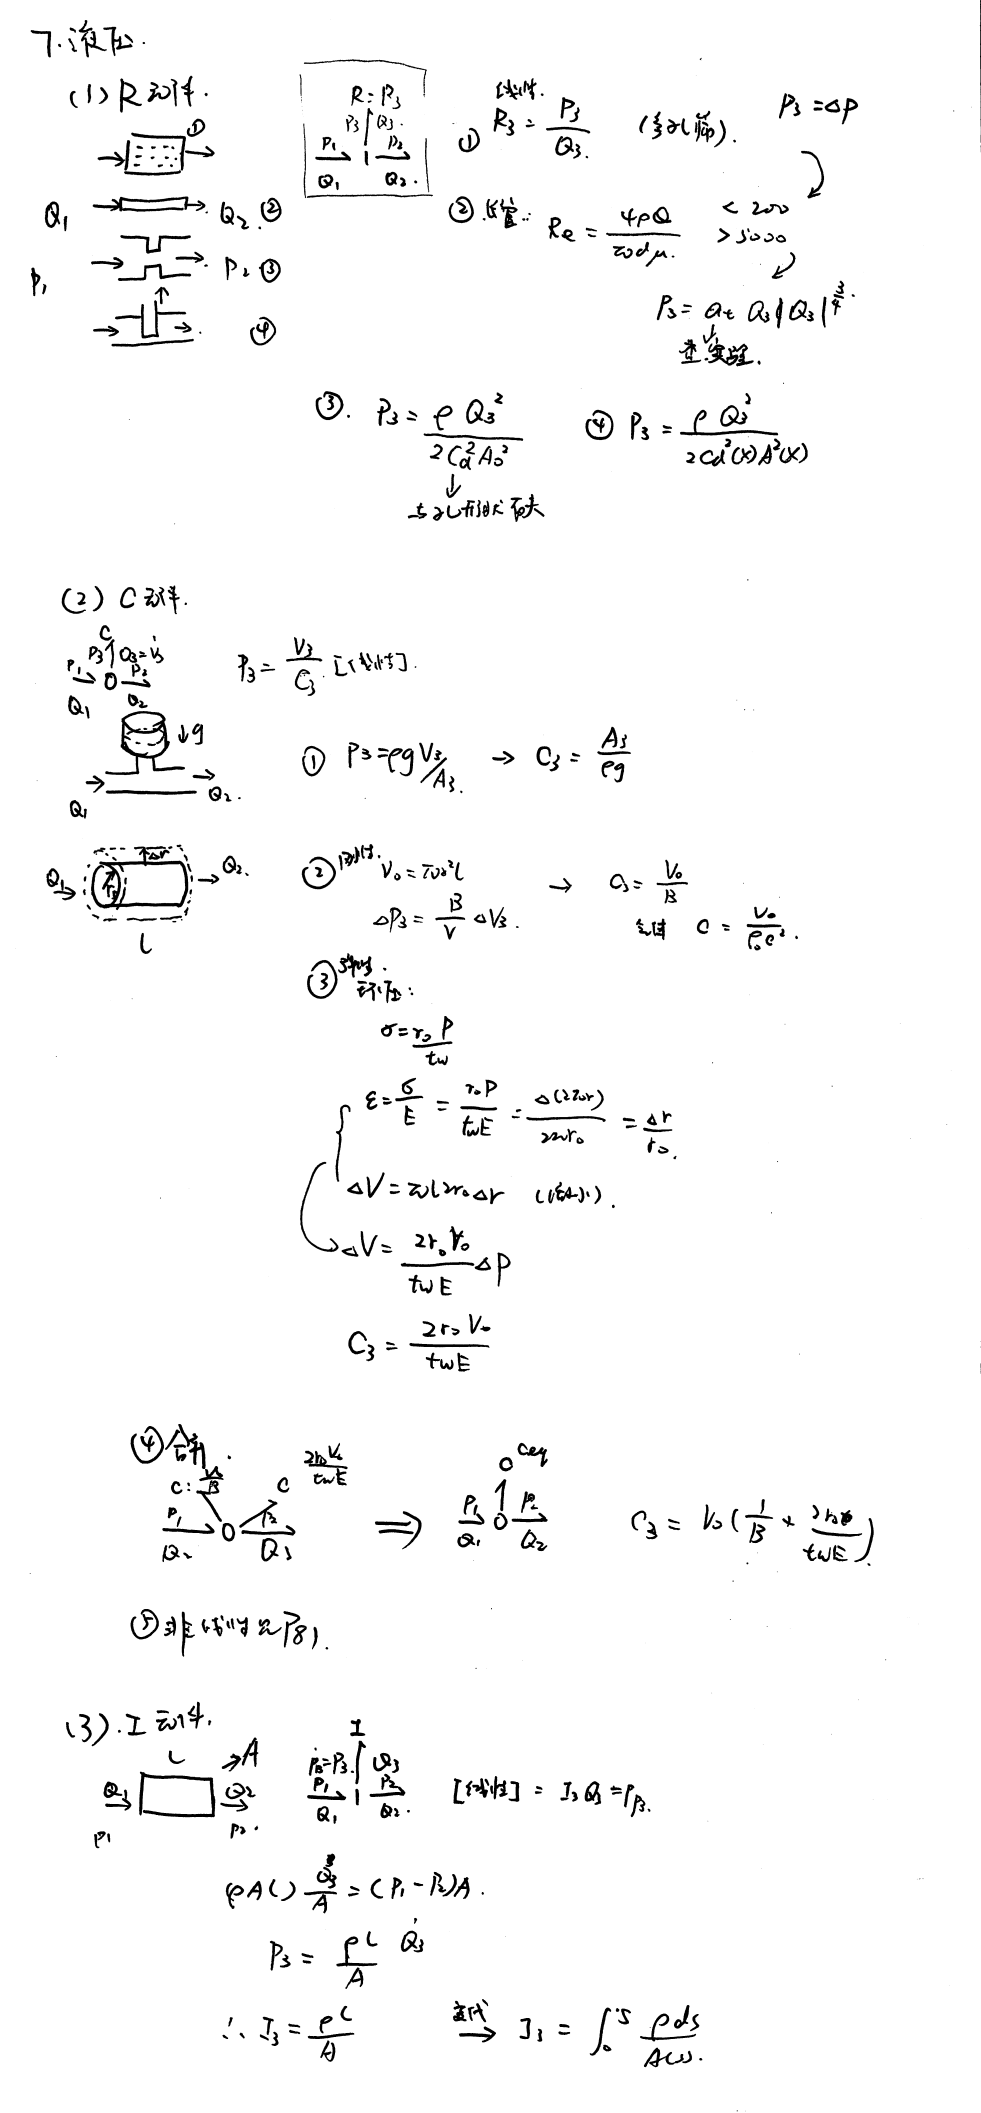 7.液压.
(1) R元件.
R: P₃
P₃ Q₃.
P₁ 1 P₂
Q₁ Q₂.
① 线性. R₃ = P₃/Q₃. (多孔筛). P₃ = ΔP
Q₁ Q₂ ②
P₁ P₂ ③
④
② 长管: Re = 4ρQ/πdμ. < 200
> 5000
P₃ = at Q₃|Q₃|^(3/4).
查实验.
③. P₃ = ρQ₃²/2Cd²A₀²
与孔形状有关
④ P₃ = ρQ₃²/2Cd²(x)A²(x)
(2) C元件.
C
P₃ Q₃=V̇₃
P₁ 0 P₂
Q₁ Q₂
P₃ = V₃/C₃ [线性].
↓g
Q₁ Q₂.
① P₃=ρgV₃/A₃. → C₃ = A₃/ρg
Q₁ r₀ Δr Q₂.
L
② 刚性. V₀=πr₀²L
ΔP₃ = B/V ΔV₃. → C₃ = V₀/B
C = V₀/ρ₀c².
③ 弹性.
环压:
σ=r₀P/tw
ε=σ/E = r₀P/twE = Δ(2πr)/2πr₀ = Δr/r₀.
ΔV = πL2r₀Δr
ΔV = 2r₀V₀/twE ΔP
C₃ = 2r₀V₀/twE
④ 合并.
C: V₀/B C 2r₀V₀/twE
P₁ 0 P₂
Q₂ Q₃
⇒
Ceq
P₁ 0 P₂
Q₁ Q₂
C₃ = V₀(1/B + 2r₀/twE)
⑤ 非线性见P81.
(3). I元件.
L A
Q₁ Q₂
P₁ P₂.
I
ṗ=P₃ Q₃
P₁ 1 P₂
Q₁ Q₂.
[线性] = I₃Q₃=Pp₃.
ρAL) Q̇₃/A = (P₁-P₂)A.
P₃ = ρL/A Q̇₃
∴ I₃ = ρL/A 变化→ I₃ = ∫₀ˢ ρds/A(s).